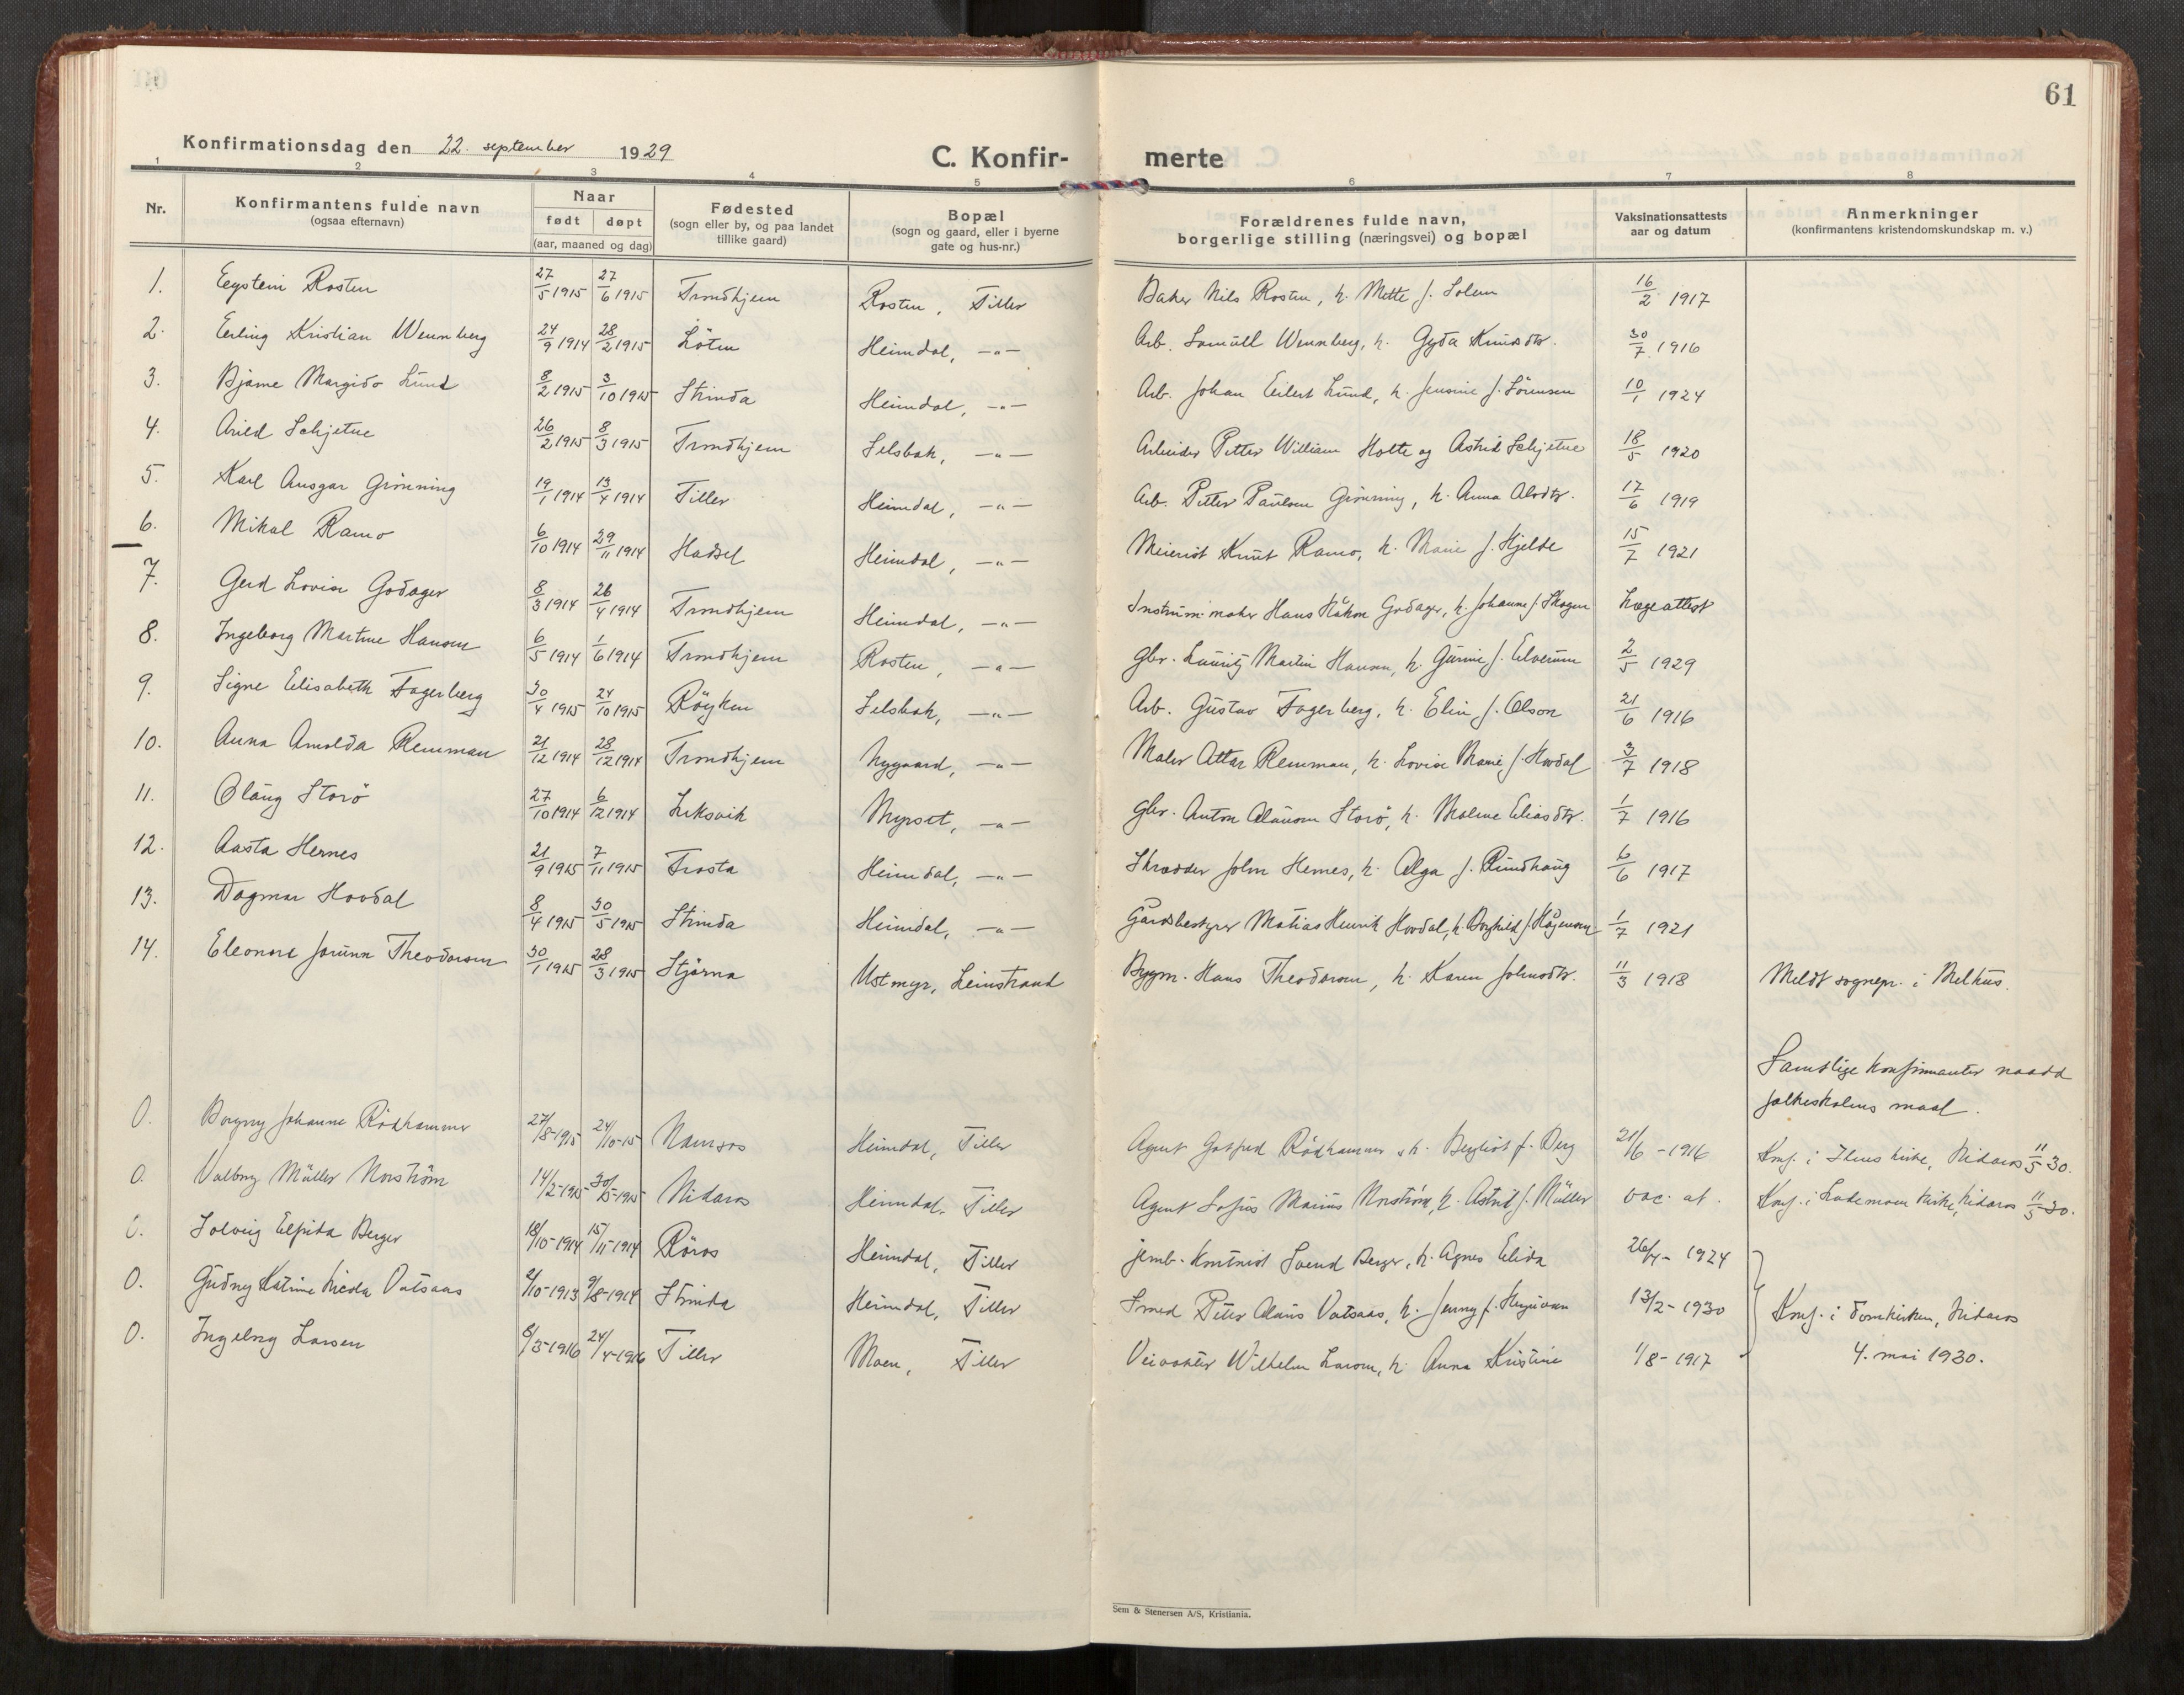 61
Konfirmationsdag den 22. september 1929 C. Konfir- merte
1 2 3 4 5 6 7 8
Nr. Konfirmantens fulde navn (ogsaa efternavn) Naar født døpt (aar, maaned og dag) Fødested (sogn eller by, og paa landet tillike gaard) Bopæl (sogn og gaard, eller i byerne gate og hus-nr.) Forældrenes fulde navn, borgerlige stilling (næringsvei) og bopæl Vaksinationsattests aar og datum Anmerkninger (konfirmantens kristendomskundskap m. v.)
1. Eystein Rosten 27/5 1915 27/6 1915 Trondhjem Rosten, Tiller Baker Nils Rosten, h. Mette f. Solem 16/2 1917
2. Erling Kristian Wennberg 24/9 1914 28/2 1915 Löten Heimdal, -"- Arb. Samuel Wennberg, h. Gyda Knudsdtr. 30/7 1916
3. Bjarne Margido Lund 8/2 1915 3/10 1915 Strinda Heimdal, -"- Arb. Johan Eilert Lund, h. Jensine f. Sörensen 10/1 1924
4. Arild Schjetne 26/2 1915 8/3 1915 Trondhjem Selsbak, -"- Arbeider Petter William Holte og Astrid Schjetne 18/5 1920
5. Karl Ansgar Grönning 19/1 1914 13/4 1914 Tiller Heimdal, -"- Arb. Petter Paulsen Grönning, h. Anna Olsdtr. 17/6 1919
6. Mikal Ramo 6/10 1914 29/11 1914 Hadsel Heimdal, -"- Meierist Knut Ramo, h. Marie f. Hjelde 15/7 1921
7. Gerd Lovise Godager 8/3 1914 26/4 1914 Trondhjem Heimdal, -"- Instrum. maker Hans Håkon Godager, h. Johanne f. Skogen Lægeattest
8. Ingeborg Martine Hansen 6/5 1914 1/6 1914 Trondhjem Rosten, -"- Gbr. Lauritz Martin Hansen, h. Gurine f. Elverum 2/5 1929
9. Signe Elisabeth Fagerberg 30/4 1915 24/10 1915 Röyken Selsbak, -"- Arb. Gustav Fagerberg, h. Elin f. Olson 21/6 1916
10. Anna Arnolda Remman 21/12 1914 28/12 1914 Trondhjem Nygaard, -"- Maler Ottar Remman, h. Lovise Marie f. Hovdal 3/7 1918
11. Olaug Storö 27/10 1914 6/12 1914 Leksvik Myrset, -"- Gbr. Anton Olausen Storö, h. Moline Eliasdtr. 1/7 1916
12. Aasta Hernes 21/9 1915 7/11 1915 Frosta Heimdal, -"- Skrædder John Hernes, h. Olga f. Rundhaug 6/6 1917
13. Dagmar Hovdal 8/4 1915 30/5 1915 Strinda Heimdal, -"- Gårdsbestyrer Matias Henrik Hovdal, h. Borghild f. Hågensen 1/7 1921
14. Eleonore Jorunn Theodorsen 30/1 1915 28/3 1915 Stjörna Ustmyr, Leinstrand Bygm. Hans Theodorsen, h. Karen Johnsdtr. 11/3 1918 Meldt sognepr. i Melhus.
Samtlige konfirmanter naadd
folkeskolens maal.
0. Borgny Johanne Rödhammer 27/8-1915 24/10-15 Namsos Heimdal, Tiller Agent Gotfred Rödhammer, h. Bergliot f. Berg 21/6-1916 Konf. i Ilens kirke, Nidaros 11/5 30.
0. Valborg Müller Norström 14/2-1915 30/5-1915 Nidaros Heimdal, Tiller Agent Sofus Marius Norström, h. Astrid f. Müller vac. at. Konf. i Lademoen kirke, Nidaros 11/5 30.
0. Solveig Elfrida Berger 18/10-1914 15/11-1914 Röros Heimdal, Tiller jernb. kontorist Svend Berger, h. Agnes Elida 26/4-1924
0. Gudny Katrine Nicola Vatsaas 2/10-1913 9/8-1914 Strinda Heimdal, Tiller Smed Peter Olaus Vatsaas, h. Jenny f. 13/2-1930 Konf. i Domkirken, Nidaros
0. Ingeborg Larsen 8/3-1916 24/4-1916 Tiller Moen, Tiller Veivokter Wilhelm Larsen, h. Anna Kristine 1/8-1917 4. mai 1930.
Sem & Stenersen A/S, Kristiania.